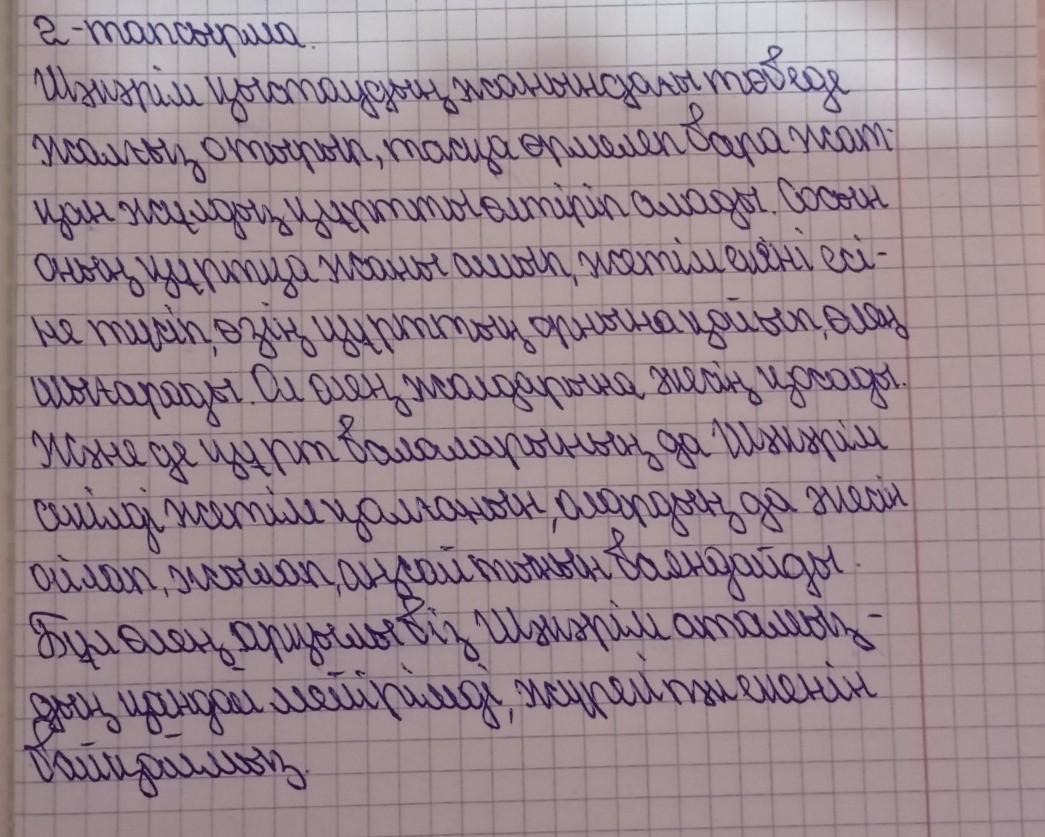 2-тапсырма.
Шәкәрім қыстаудың жанындағы төбеде
жалғыз отырып, тасқа өрмелеп бара жат-
қан жұлдыз құртты өлтіріп алады. Сосын
оның құртқа жаны ашып, жетім екені есі-
не түсіп, өзін құрттың орнына қойып, өлең
шығарады. Ол өлең жолдарына әнін қосады.
Және де құрт балаларының да Шәкәрім
сияқты жетім қалғанын, олардың да әкесін
ойлап, жылап, аңсайтынын баяндайды.
Бұл өлең арқылы біз Шәкәрім атамыз-
дың қандай мейірімді, жүрегі таза екенін
байқаймыз.